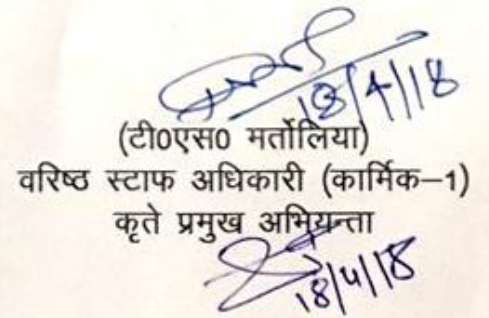 18/4/18
(टी0एस0 मर्तोलिया)
वरिष्ठ स्टाफ अधिकारी (कार्मिक–1)
कृते प्रमुख अभियन्ता
18/4/18